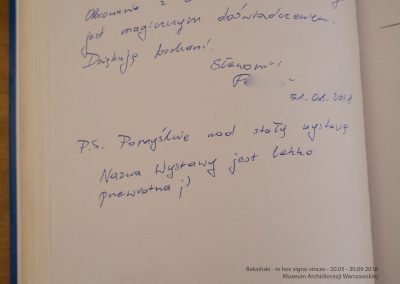 Obcowanie z
jest magicznym doświadczeniem.
Dziękuję kochani.
Sławomir
31.08.2018
P.S. Pomyślcie nad stałą wystawą
Nazwa Wystawy jest lekko
przewrotna ;)
Beksiński - In hoc signo vinces - 20.05 - 30.09 2018
Muzeum Archidiecezji Warszawskiej